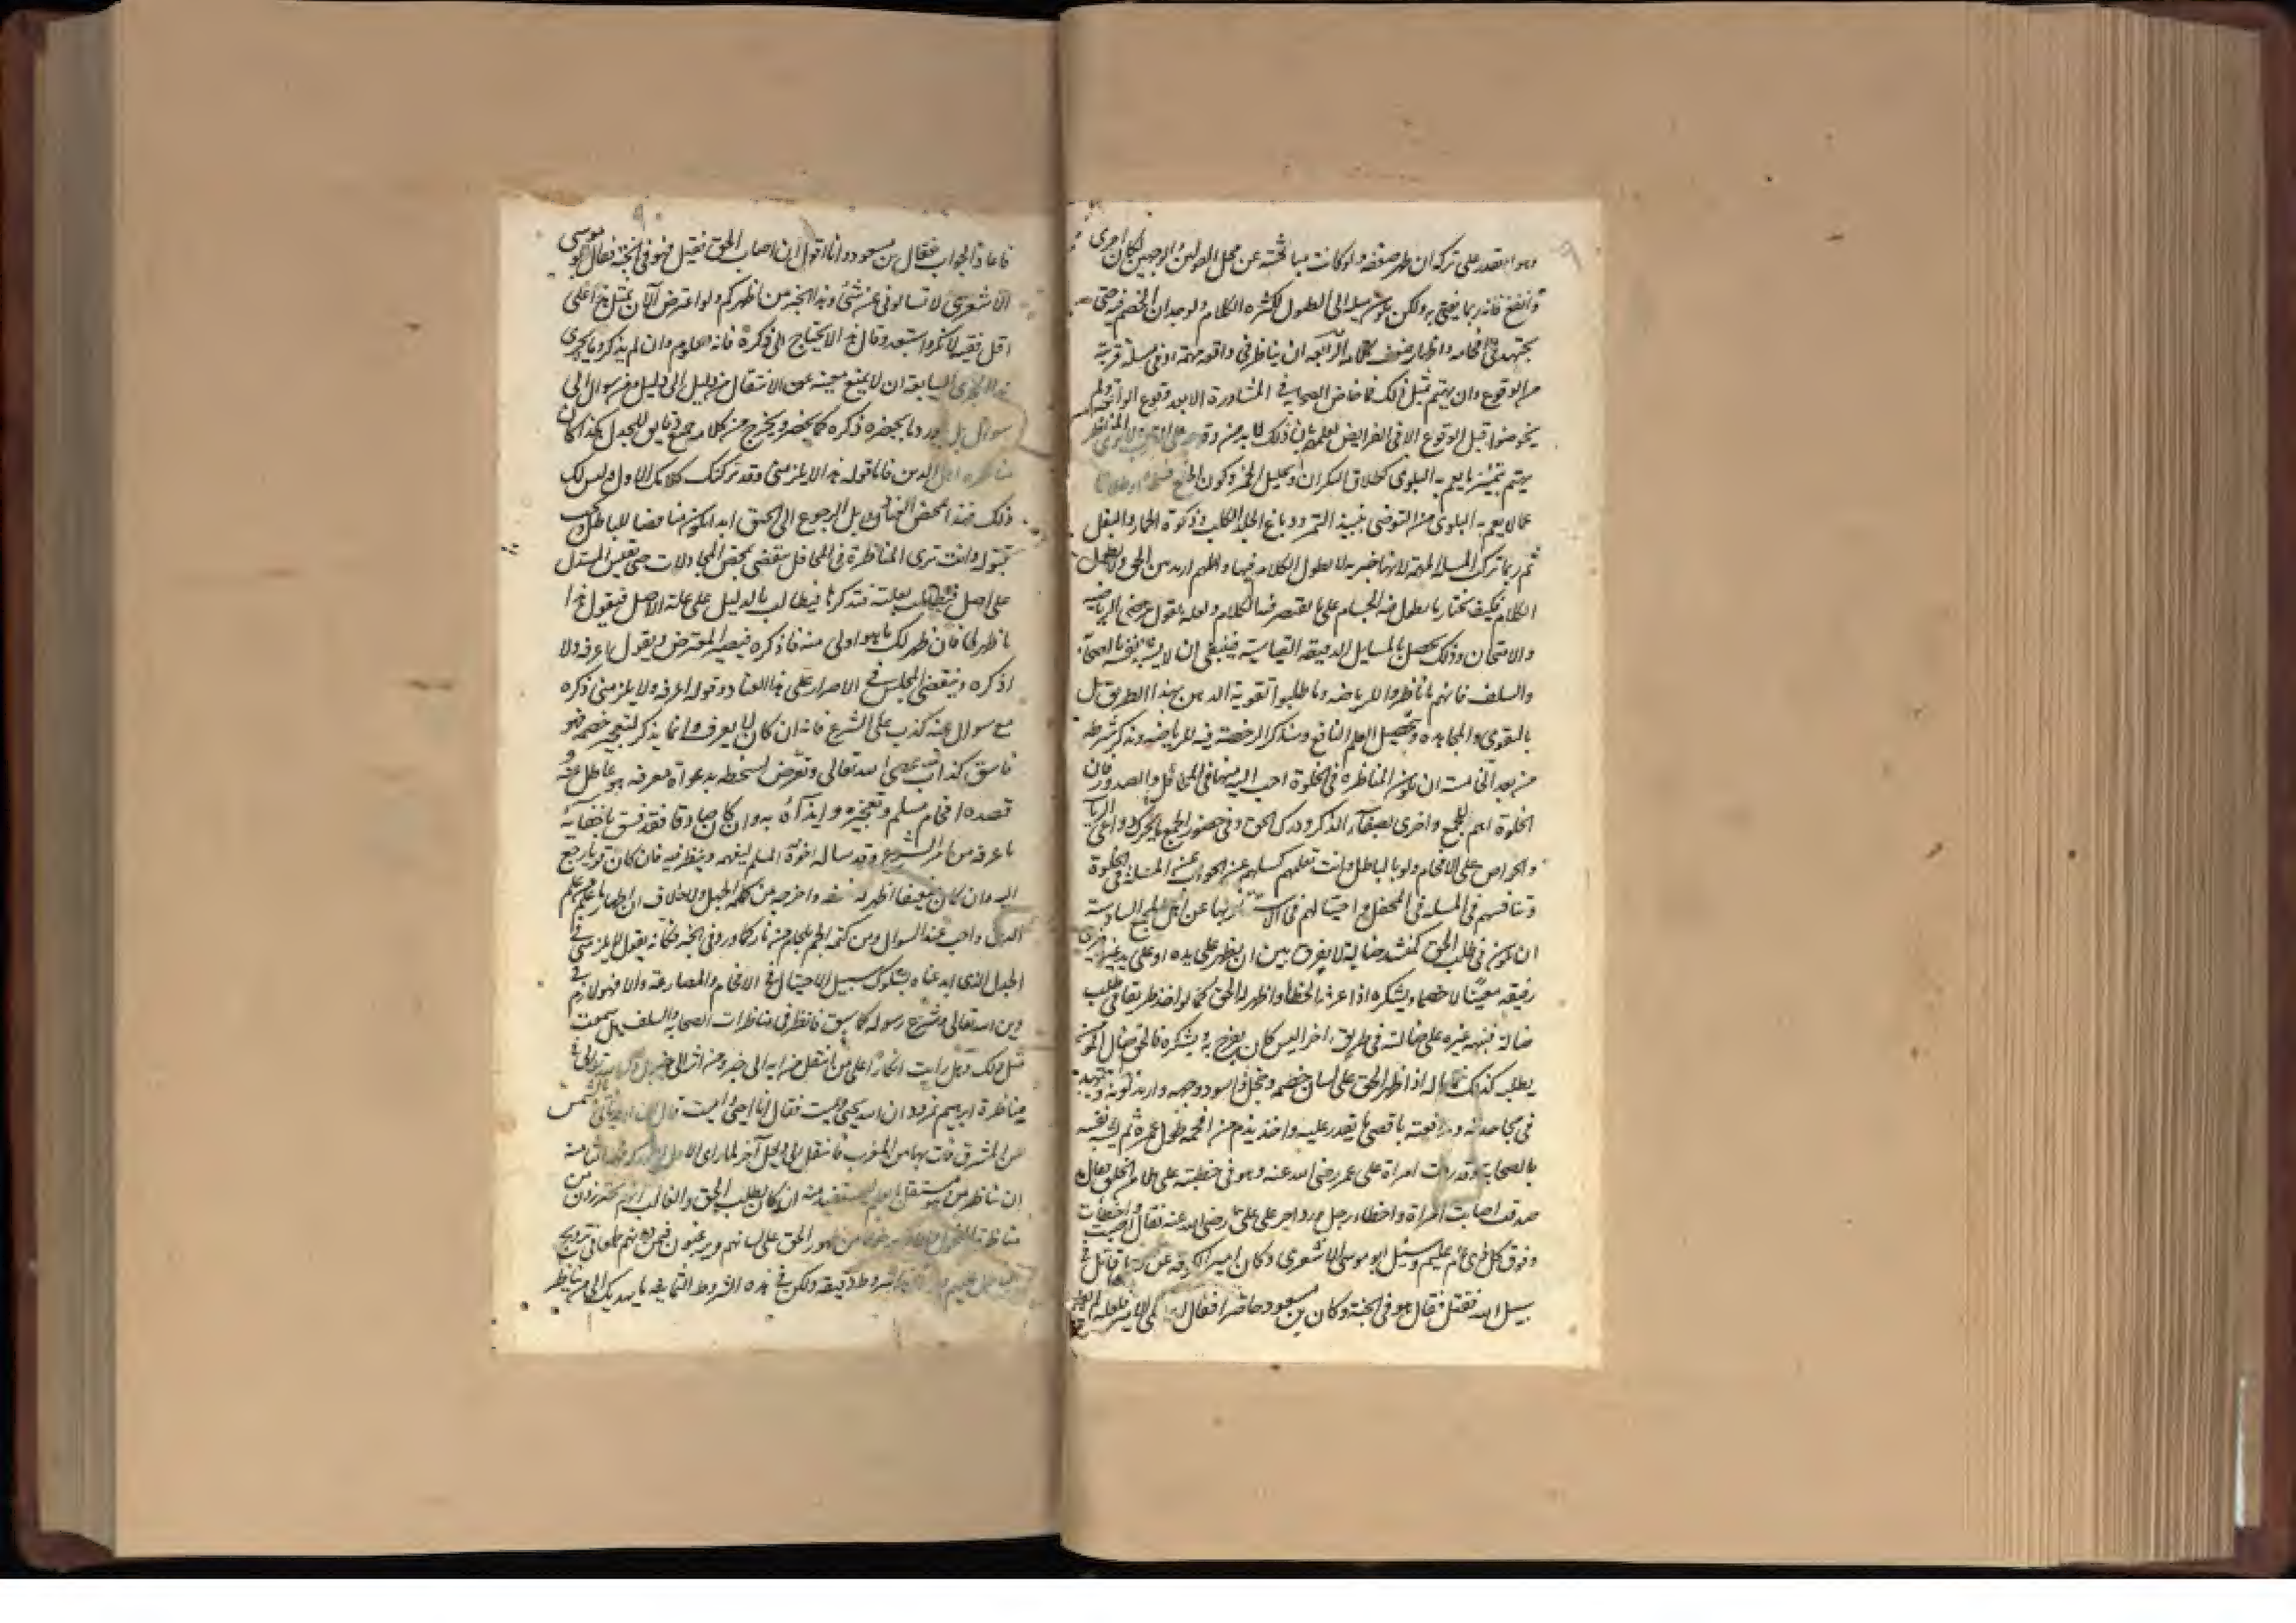 وهو يقدر على تركه ان ظهر ضعفه ولو كانت مباحثته عن محل القولين والوجهين لكان احرى
وانفع فانه ربما يفتي به ولكن يؤثر ميله الى الطول لكثرة الكلام ولوجدان الخصم فيه حتى
يجتهد في افحامه واظهار ضعف كلامه الرابعة ان يناظر في واقعة مهمة او في مسلة قريبة
من الوقوع وان يهتم بمثل ذلك فما خاض الصحابة في المشاورة الا بعد وقوع الواقعة ولم
يخوضوا قبل الوقوع الا في الفرايض لعلمهم بان ذلك لا بد من وقوعه على القرب لا نرى المناظر
يهتم بتمييز ما يعم به البلوى كطلاق السكران وتحليل الخمر وكون الخلع فسخا او طلاقا
عما لا يعم به البلوى من التوضي بنبيذ التمر ودباغ الجلد الكلب وذكوة الحمار والبغل
ثم ربما ترك المسلة المهمة لانها خبرية لا يطول الكلام فيها والمهم ارید من الحق ولا يطول
الكلام فكيف نختار ما يطول فيه الجسام على ما يقتصر فيه الكلام ولعله يقول غرضي الرياضة
والامتحان وذلك يحصل بالمسايل الدقيقة القياسية فينبغي ان لا يشبه نفسه بالصحابة
والسلف فانهم ما ناظروا للرياضه وما طلبوا تقوية الذهن بهذا الطريق بل
بالتقوى والمجاهدة وتحصيل العلم النافع وسنذكر الرخصة فيه للرياضه ونذكر شرطه
من بعد الخامسة ان يكون المناظرة في الخلوة احب اليه منها في المحافل والصدور فان
الخلوة اجمع للهم واحرى بصفاء الذكر ودرك الحق وفي حضور الجمع ما يحرك دواعي الريا
والحرص على الافحام ولو بالباطل وانت تعلم كسلهم عن الجواب عن المسلة في الخلوة
وتنافسهم في المسلة في المحفل واحتيالهم في الاستيثار بها عن اهل الجمع السادسة
ان يكون في طلب الحق كمنشد ضالة لا يفرق بين ان يظهر على يده او على يد غيره فيرى
رفيقه معينا لا خصما ويشكره اذا عرفه الخطأ واظهر له الحق كما لو اخذ طريقا في طلب
ضالة فنبهه غيره على ضالته في طريق اخر اليس كان يفرح به ويشكره فالحق ضال المؤمن
يطلبه كذلك فما باله اذا ظهر الحق على لسان خصمه وخجل فاسود وجهه واربد لونه ويجتهد
في مجاحدته ومدافعته باقصى ما يقدر عليه واخذ يذم من افحمه طول عمره ثم يشبه نفسه
بالصحابة وقد ردت امراة على عمر رضي الله عنه وهو في خطبته على ملا من الخلق فقال
صدقت اصابت المراة واخطاء رجل ورد اخر على علي رضي الله عنه فقال اصبت واخطأت
وفوق كل ذي علم عليم وسئل ابو موسى الاشعري وكان امير الكوفة عن رجل قاتل في
سبيل الله فقتل فقال هو في الجنة وكان بن مسعود حاضرا فقال اعد على الامير فلعله لم يفهم
فاعاد الجواب فقال بن مسعود وانا اقول ان اصاب الحق فقتل فهو في الجنة فقال ابو موسى
الاشعري لا تسالوني عن شئ وهذا الحبر من اظهركم ولو اعترض الآن بمثل هذا على
اقل فقيه لانكره واستبعد وقال هذا لا يحتاج الى ذكره فانه معلوم وان لم يذكر وما يجري
هذا المجرى السابعة ان لا يمنع معينه عن الانتقال من دليل الى دليل ومن سوال الى
سوال بل يورد ما يحضره ذكره كما يحضر ويخرج من كلامه جميع دقايق الجدل هكذا كان
مناظرة اهل الدين فاما قوله هذا لا يلزمني وقد تركت كلامك الاول وليس لك
ذلك فهذا محض العناد بل الرجوع الى الحق ابدا يكون مناقضا للباطل ويجب
قبوله وانت ترى المناظرة في المحافل تنقضي بمحض المجادلات حتى يقيس المستدل
على اصل فيطلب بعلته فتذكرها فيطالب بالدليل على علة الاصل فيقول هذا
ما ظهر لي فان ظهر لك ما هو اولى منه فاذكره فيصر المعترض ويقول ما عرفه ولا
اذكره وينقضي المجلس في الاصرار على هذا العناد وقوله اعرفه ولا يلزمني ذكره
مع سوال عنه كذب على الشرع فانه ان كان لا يعرف وانما يذكر لتعجيز خصمه فهو
فاسق كذاب عصى الله تعالى وتعرض لسخطه بدعواه معرفة هو عاطل عنه و
قصده افحام مسلم وتعجيزه وايذاؤه به وان كان صادقا فقد فسق باخفايه
ما عرفه من امر الشرع وقد ساله اخوه المسلم ليفهمه وينظر فيه فان كان قويا رجع
اليه وان كان ضعيفا اظهر له ضعفه واخرجه من ظلمة الجهل ولا خلاف ان اظهار ما علم من علم
الدين واجب عند السوال ومن كتمه الجم بلجام من نار كما ورد في الخبر فكانه يقول لا يلزمني في
الجدل الذي ابدعناه بسلوك سبيل الاحتيال في الافحام والمصارعة والا فهو لازم في
دين الله تعالى وشرع رسوله كما سبق فانظر في مناظرات الصحابة والسلف هل سمعت
مثل ذلك وهل رايت انكارا على من انتقل من اية الى خبر ومن اثر الى خبر بل
مناظرة ابرهيم نمرود ان الله يحيي ويميت فقال انا احيي واميت قال ان الله ياتي بالشمس
من المشرق فات بها من المغرب فانتقل الى دليل آخر لما راى الاول الثامنة
ان يناظر من هو مستقل بالعلم ليستفيد منه ان كان يطلب الحق والغالب انهم يحترزون من
مناظرة الفحول خوفا من ظهور الحق على لسانهم ويرغبون فيمن دونهم طمعا في ترويج
الباطل عليهم شروط دقيقة ولكن في هذه الشروط الثمانية ما يهديك الى من يناظر